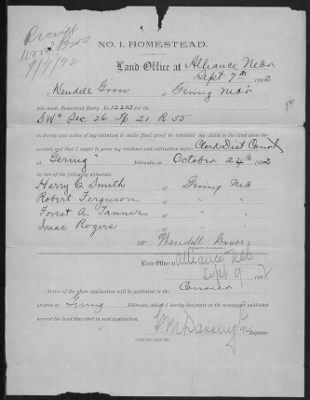 Wood Bros
9/9/92
NO. 1. HOMESTEAD.
Land Office at Alliance Nebr
Sept 7th 1892
Wendell Grove of Gering Nebr
who made Homestead Entry No. for the
SW4 Sec 26 Tp 21 R 55
do hereby give notice of my intention to make final proof to establish my claim to the land above de-
scribed, and that I expect to prove my residence and cultivation before Clerk Dist Court
at Gering Nebraska, on October 24th 1892
by two of the following witnesses:
Harry C Smith of Gering Neb
Robert Ferguson " "
Forrest A. Tanner " "
Isaac Rogers " "
Wendell Grove
Land Office at Alliance Neb
Sept 9 189
Notice of the above application will be published in the Courier
printed at Gering Nebraska, which I hereby designate as the newspaper published
nearest the land described in said application.
Register